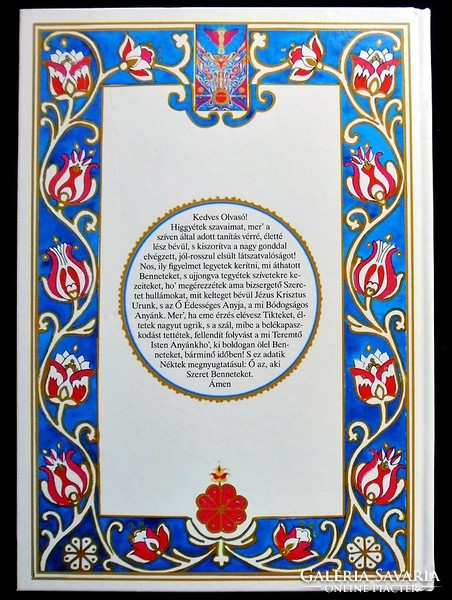 Kedves Olvasó!
Higgyétek szavaimat, mer' a
szíven által adott tanítás vérré, életté
lész bévül, s kiszorítva a nagy gonddal
elvégzett, jól-rosszul elsült látszatvalóságot!
Nos, ily figyelmet legyetek kerítni, mi áthatott
Benneteket, s ujjongva tegyétek szívetekre ke-
zeiteket, ho' megérezzétek ama bizsergető Szere-
tet hullámokat, mit kelteget bévül Jézus Krisztus
Urunk, s az Ő Édességes Anyja, a mi Bódogságos
Anyánk. Mer', ha eme érzés elévesz Tikteket, él-
tetek nagyut ugrik, s a szál, mibe a belékapasz-
kodást tettétek, fellendít folyvást a mi Teremtő
Isten Anyánkho', ki boldogan ölel Ben-
neteket, bárminő időben! S ez adatik
Néktek megnyugtatásul: Ő az, aki
Szeret Benneteket.
Ámen
GALERIA SAVARIA
ONLINE PIACTÉR